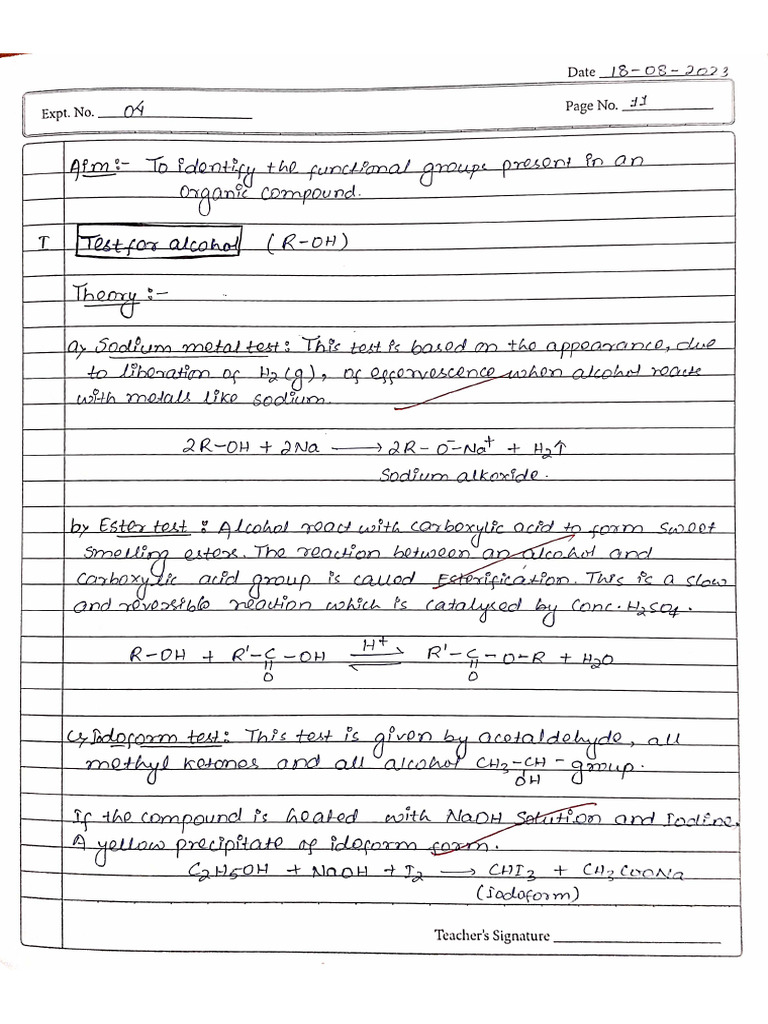 Date 18-08-2023
Expt. No. 04
Page No. 11
Aim:- To identify the functional groups present in an
organic compound.
I Test for alcohol (R-OH)
Theory :-
a) Sodium metal test: This test is based on the appearance, due
to liberation of H2(g), of effervescence when alcohol reacts
with metals like sodium.
2R-OH + 2Na ⟶ 2R-O⁻Na⁺ + H2↑
Sodium alkoxide.
b) Ester test : Alcohol react with carboxylic acid to form sweet
smelling esters. The reaction between an alcohol and
carboxylic acid group is called Esterification. This is a slow
and reversible reaction which is catalysed by conc. H2SO4.
H⁺
R-OH + R'-C-OH ⇌ R'-C-O-R + H2O
O O
c) Iodoform test: This test is given by acetaldehyde, all
methyl ketones and all alcohol CH3-CH- group.
OH
If the compound is heated with NaOH Solution and Iodine.
A yellow precipitate of idoform form.
C2H5OH + NaOH + I2 ⟶ CHI3 + CH3COONa
(iodoform)
Teacher's Signature